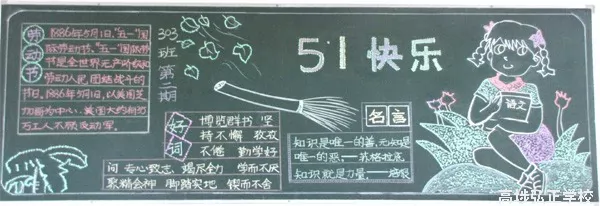 劳动节
1886年5月1日."五一"国
际劳动节."五一"国际劳动
节是全世界无产阶级和
劳动人民团结战斗的
节日。1886年5月1日,以美国芝
加哥为中心,美国大约有35
万工人不狠发动军.
303
班
第二期
51快乐
好词
博览群书 坚
持不懈 孜孜
不倦 勤学好
问 专心致志 竭尽全力 学而不厌
聚精会神 脚踏实地 锲而不舍
名言
知识是唯一的善,无知是
唯一的恶——苏格拉底
知识就是力量。——培根
语文
高桥弘正学校